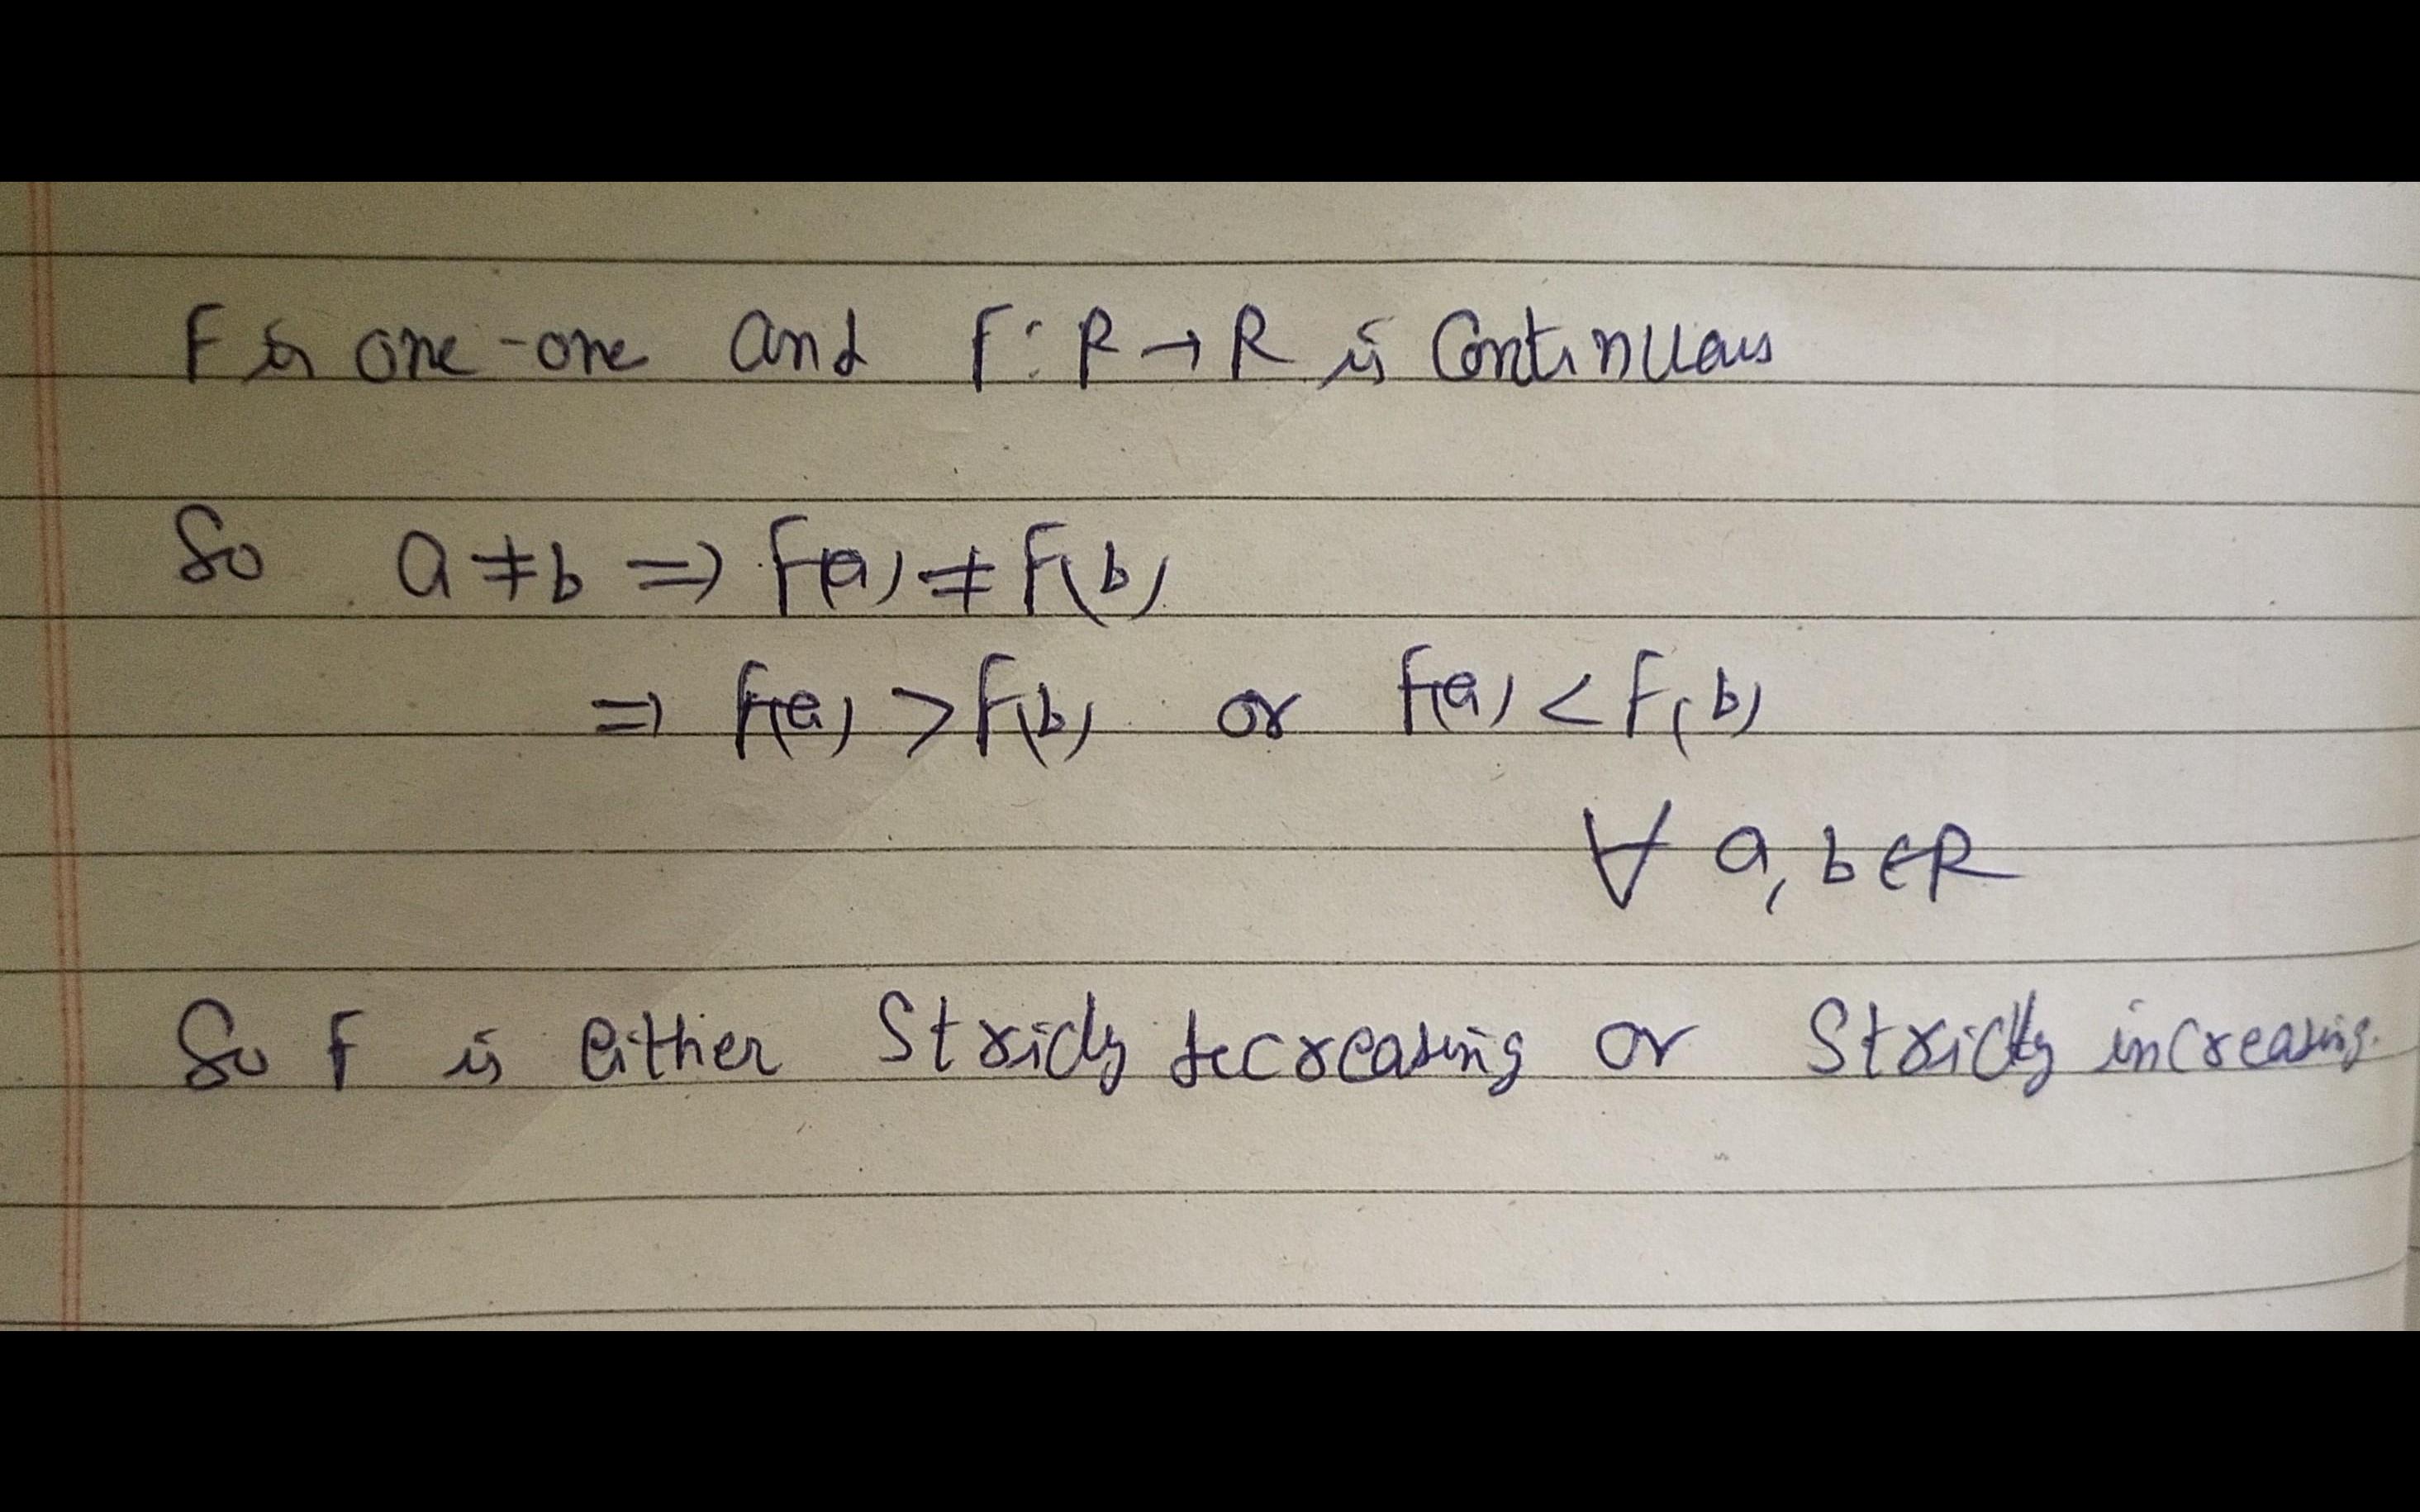 F is one-one and F: R → R is Continuous
So a ≠ b => F(a) ≠ F(b)
=> F(a) > F(b) or F(a) < F(b)
∀ a, b ∈ R
So F is either Stricly decreasing or Strictly increasing.